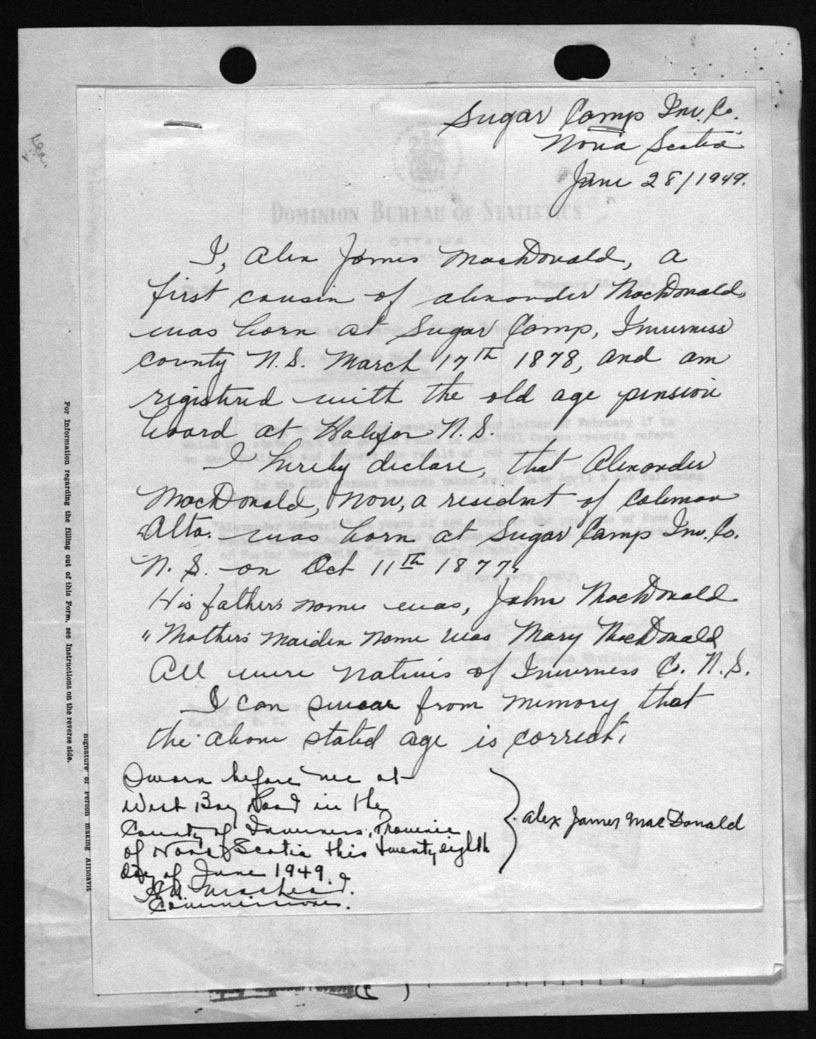 Sugar Camp Inv. Co.
Nova Scotia
June 28/1949.
DOMINION BUREAU OF STATISTICS
OTTAWA
I, Alex James MacDonald, a
first cousin of alexander MacDonald,
was born at Sugar Camp, Inverness
County N.S. March 17th 1878, and am
registered with the old age pension
board at Halifax N.S.
I hereby declare, that Alexander
MacDonald, now, a resident of Coleman
Alta. was born at Sugar Camp Inv. Co.
N.S. on Oct 11th 1877.
His fathers name was, John MacDonald
" Mothers maiden name was Mary MacDonald
All were natives of Inverness C. N.S.
I can swear from memory that
the above stated age is correct.
Sworn before me at
West Bay Road in the
County of Inverness, Province
of Nova Scotia this twenty eighth
day of June 1949.
Commissioner.
Alex James MacDonald
For Information regarding the filling out of this Form, see Instructions on the reverse side.
Signature of Person making Affidavit